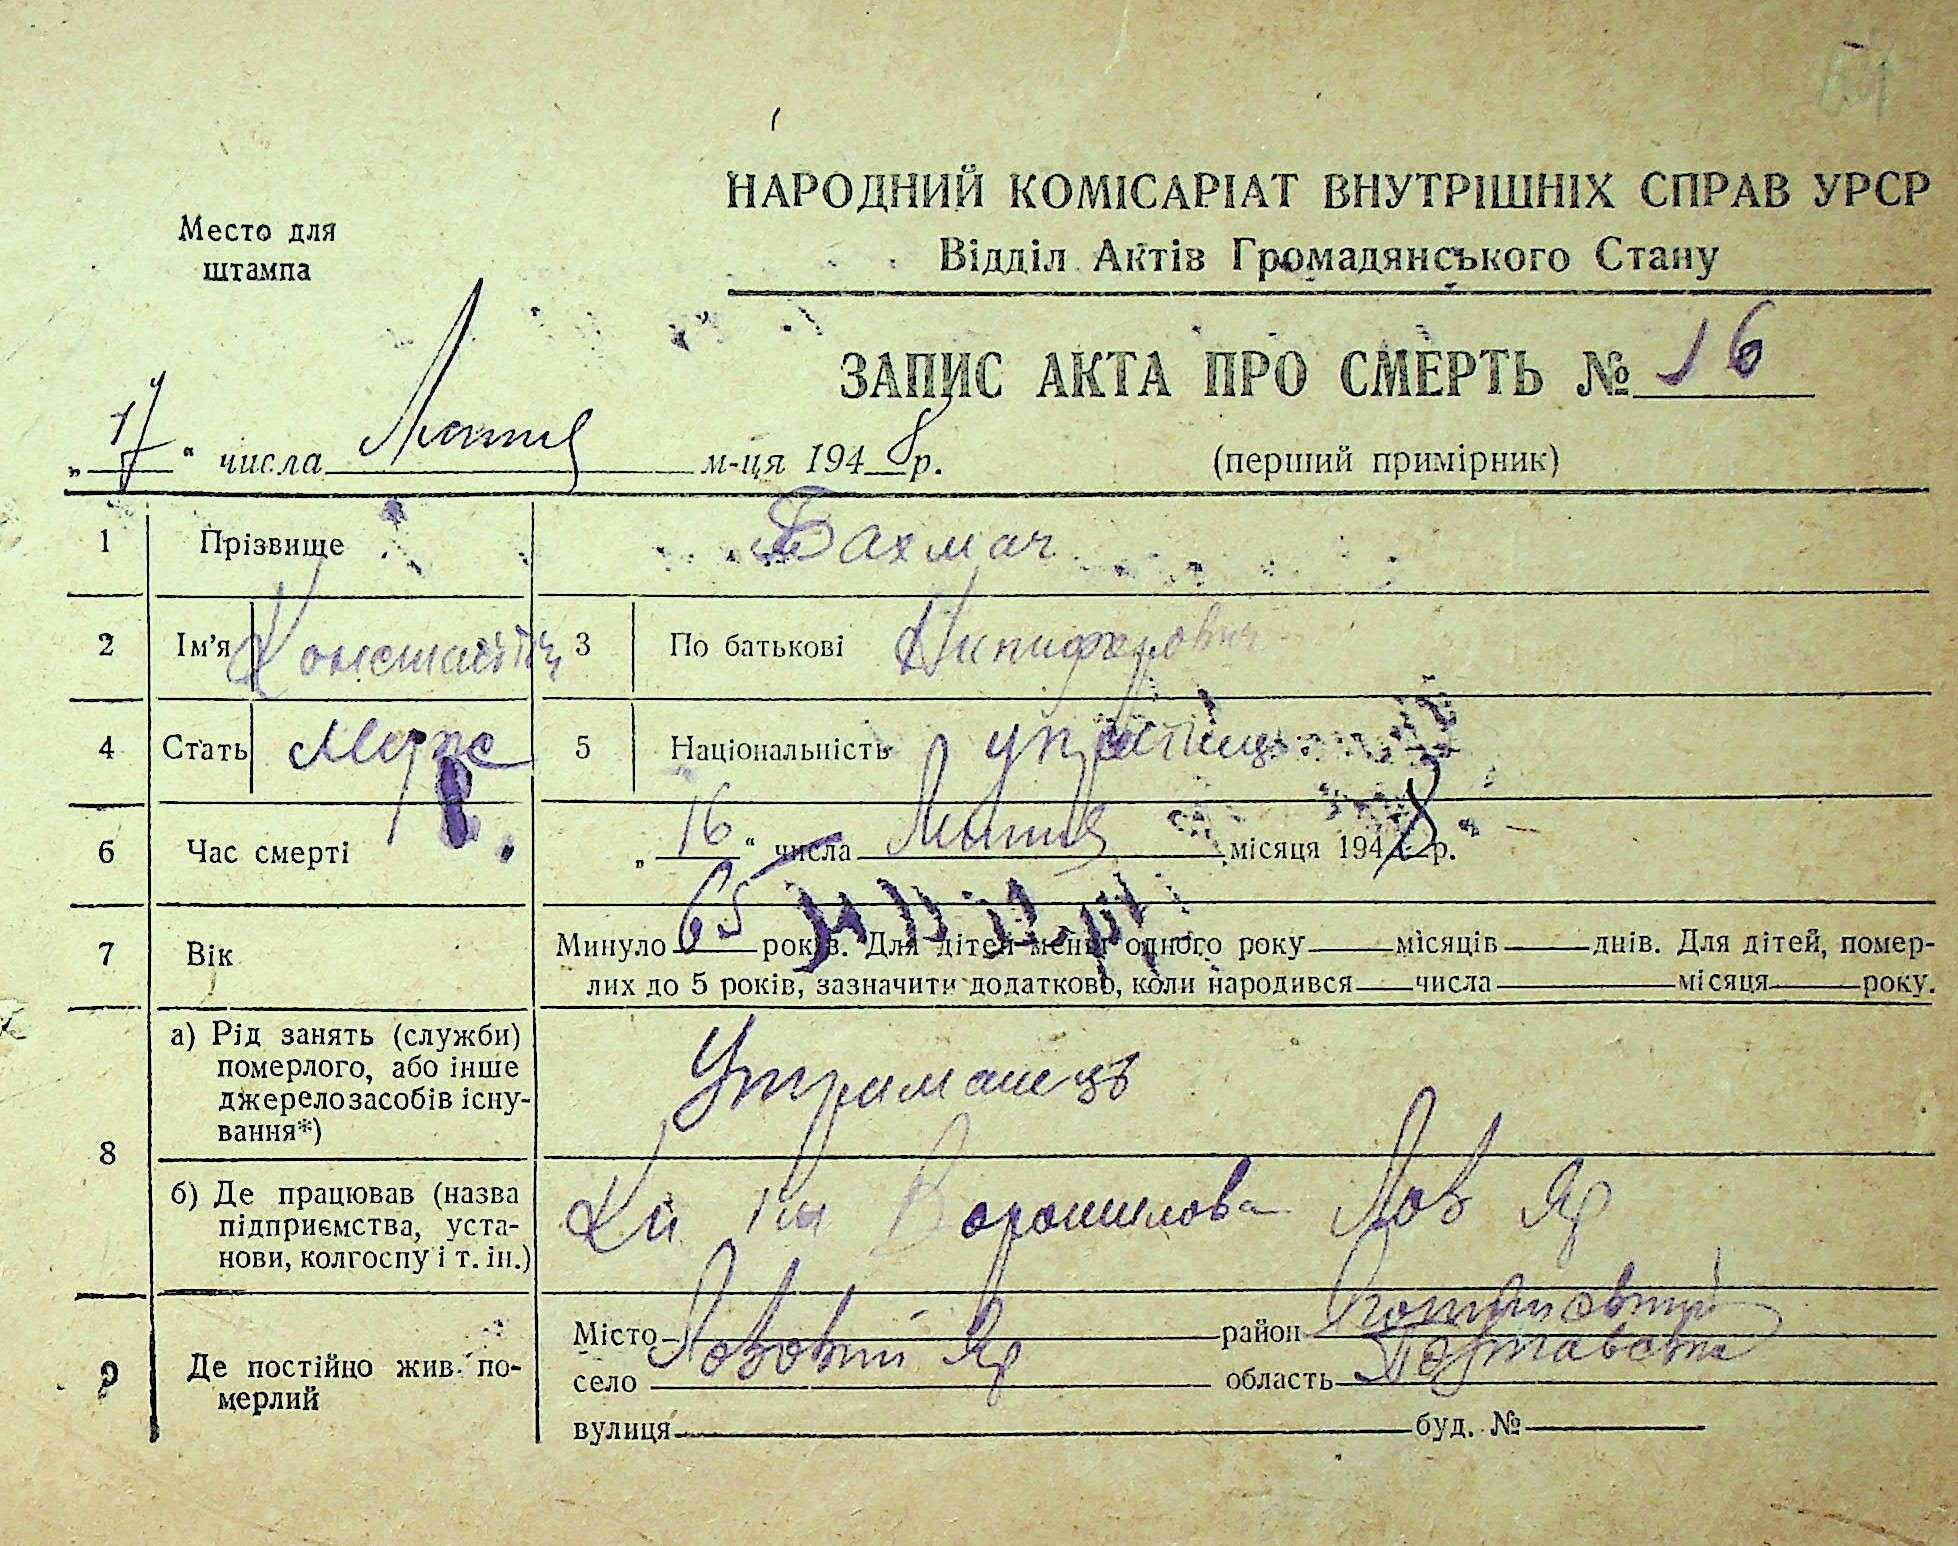 НАРОДНИЙ КОМІСАРІАТ ВНУТРІШНІХ СПРАВ УРСР
Відділ Актів Громадянського Стану
Место для
штампа
ЗАПИС АКТА ПРО СМЕРТЬ № 16
„17“ числа Лютий м-ця 1948 р.
(перший примірник)
1 Прізвище Бахмач
2 Ім'я Константин 3 По батькові Никифорович
4 Стать Муже 5 Національність українець
6 Час смерті „16“ числа Лютий місяця 1948 р.
7 Вік Минуло 65 років. Для дітей менш одного року місяців днів. Для дітей, помер-
лих до 5 років, зазначити додатково, коли народився числа місяця року.
8 а) Рід занять (служби)
померлого, або інше
джерело засобів існу-
вання*)
Утриманець
б) Де працював (назва
підприємства, уста-
нови, колгоспу і т. ін.)
Ворошилова Лоз Яр
9 Де постійно жив по-
мерлий
Місто Лозовий Яр район
село область Полтавська
вулиця буд. №